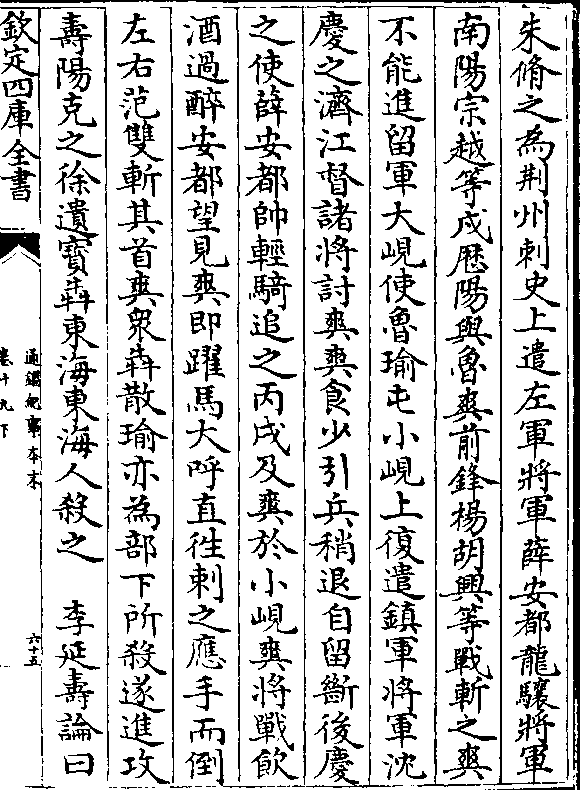 朱脩之為荆州刺史上遣左軍將軍薛安都龍驤將軍
南陽宗越等戍歴陽與魯爽前鋒楊胡興等戰斬之爽
不能進留軍大峴使魯瑜屯小峴上復遣鎮軍將軍沈
慶之濟江督諸將討爽爽食少引兵稍退自留斷後慶
之使薛安都帥輕騎追之丙戌及爽於小峴爽將戰飲
酒過醉安都望見爽即躍馬大呼直往刺之應手而倒
左右范雙斬其首爽衆犇散瑜亦為部下所殺遂進攻
壽陽克之徐遺寳犇東海東海人殺之　李延壽論曰
欽定四庫全書
通鑑紀事本末
卷十九下
六十五